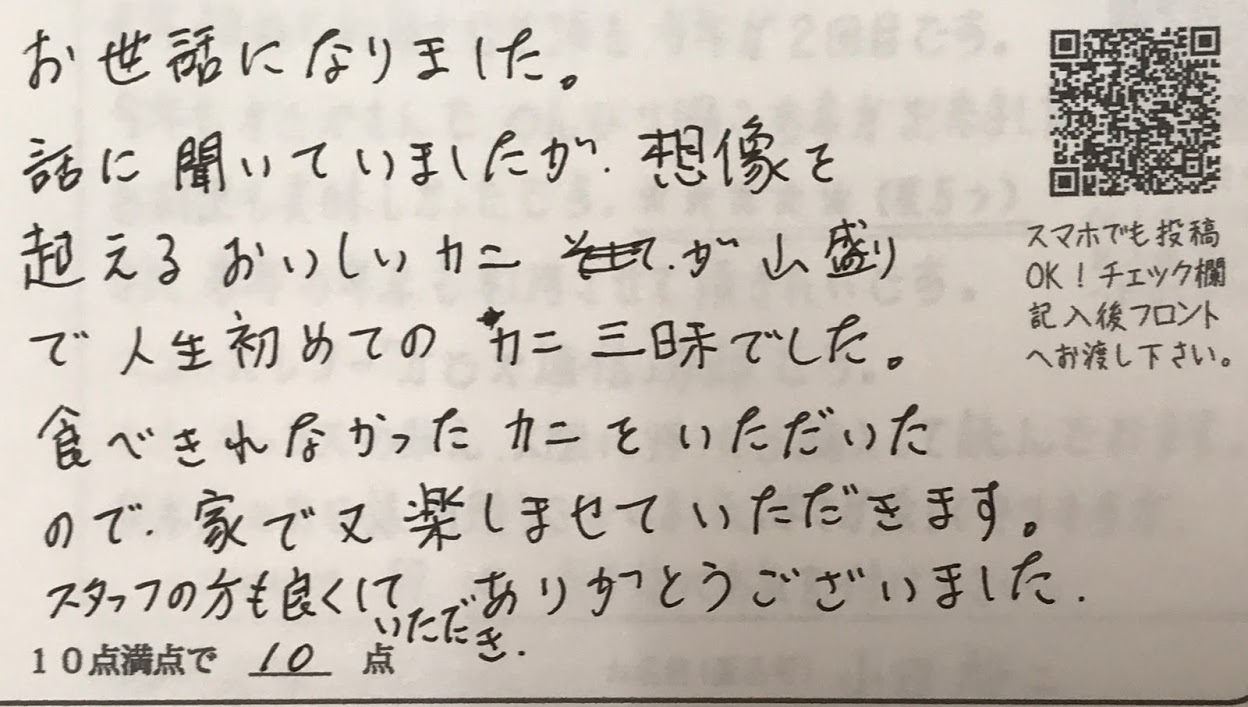 お世話になりました。
話に聞いていましたが、想像を
超えるおいしいカニが山盛り
で人生初めてのカニ三昧でした。
食べきれなかったカニをいただいた
ので、家で又楽しませていただきます。
スタッフの方も良くして
いただでき、
ありがとうございました.
10点満点で 10 点
スマホでも投稿
OK！チェック欄
記入後フロント
へお渡し下さい。